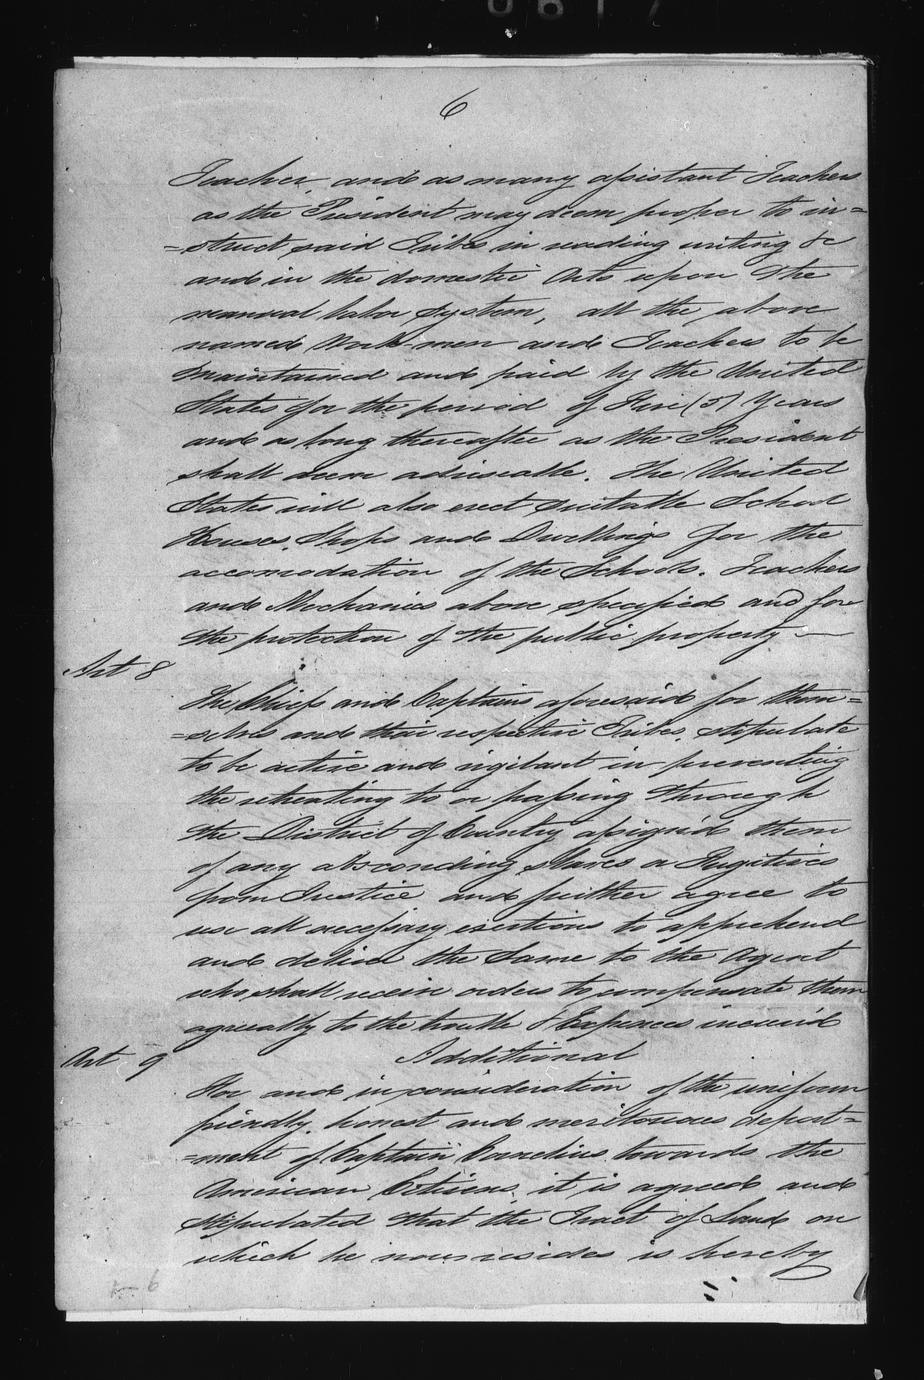 6
Teacher, and as many assistant Teachers
as the President may deem proper to in=
=struct said Tribes in reading writing &c
and in the domestic Arts upon the
manual labor System, all the above
named Work-men and Teachers to be
maintained and paid by the United
States for the period of Five (5) Years
and as long thereafter as the President
shall deem adviseable. The United
States will also erect suitable School
Houses, Shops and Dwellings for the
accomodation of the Schools. Teachers
and Mechanics above specified and for
the protection of the public property —
Art 8
The Chiefs and Captains aforesaid for them=
=selves and their respective Tribes, stipulate
to be active and vigilant in preventing
the retreating to or passing through
the District of Country assigned them
of any absconding Slaves or Fugitives
from Justice and further agree to
use all necessary exertions to apprehend
and deliver the Same to the Agent
who shall receive orders to compensate them
agreeably to the trouble & Expences incurred
Art 9 Additional
For and in consideration of the uniform
friendly, honest and meritorious deport=
=ment of Captain towards the
American Citizens it is agreed and
stipulated that the Tract of Land on
which he now resides is hereby